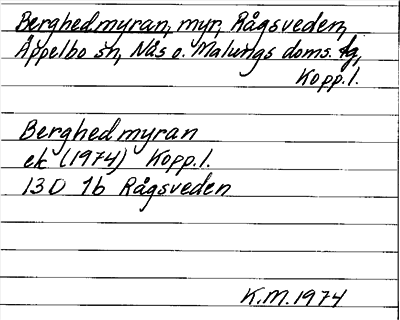 Berghedmyran, myr, Rågsveden,
Äppelbo sn, Nås o. Malungs doms. tg,
Kopp.l.
Berghedmyran
ek (1974) Kopp.l.
13D 1b Rågsveden
K.M.1974